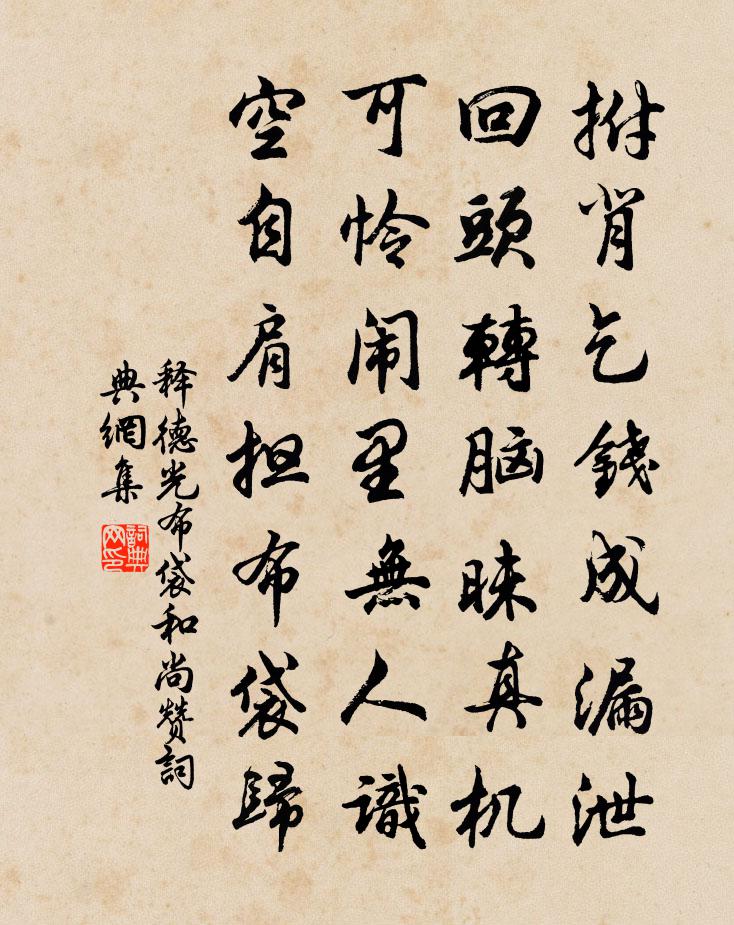 拊背乞錢成漏泄
回頭轉脑昧真机
可怜闹里無人識
空自肩担布袋歸
释德光布袋和尚赞詞
典網集
詞典网印